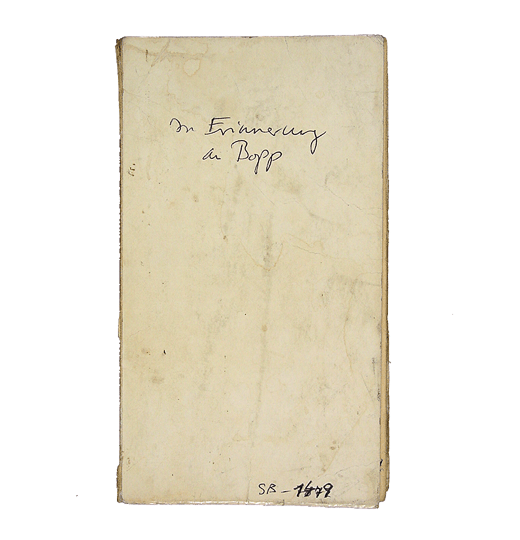 In Erinnerung
an Bopp
SB - 1479